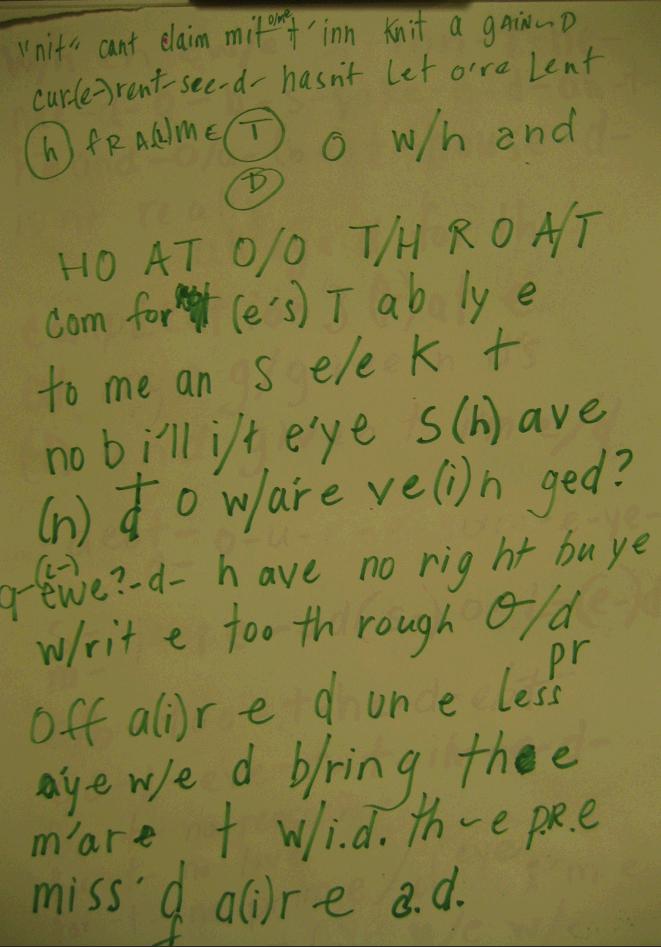 "nit" cant claim mit o/me t' inn knit a gAiN-D
cur(e-)rent-see-d- hasn't Let o're Lent
(h) fRA(i)ME (T) O w/h and
(D)
HO AT O/O T/H R O A/T
com for (e's) T ab ly e
to me an S e/e K t
no b i'll i/t e'ye s(h)ave
(n) d t o w/are ve(i)n ged?
q-(c-)ewe?-d- h ave no rig ht bu ye
w/rit e too th rough O/d
pr
off a(i)r e d un e less
a'ye w/e d b/ring th e e
m'are t w/i.d. th-e p.R.e
miss'd a(i)r e a.d.
f